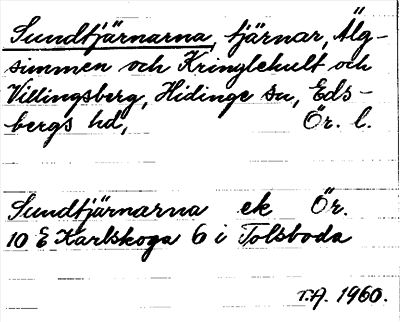 Sundtjärnarna, tjärnar, Älg-
simmen och Kringlehult och
Villingsberg, Hidinge sn, Eds-
bergs hd, Ör. l.
Sundtjärnarna ek Ör.
10 E Karlskoga 6 i Tolsboda
r.A. 1960.